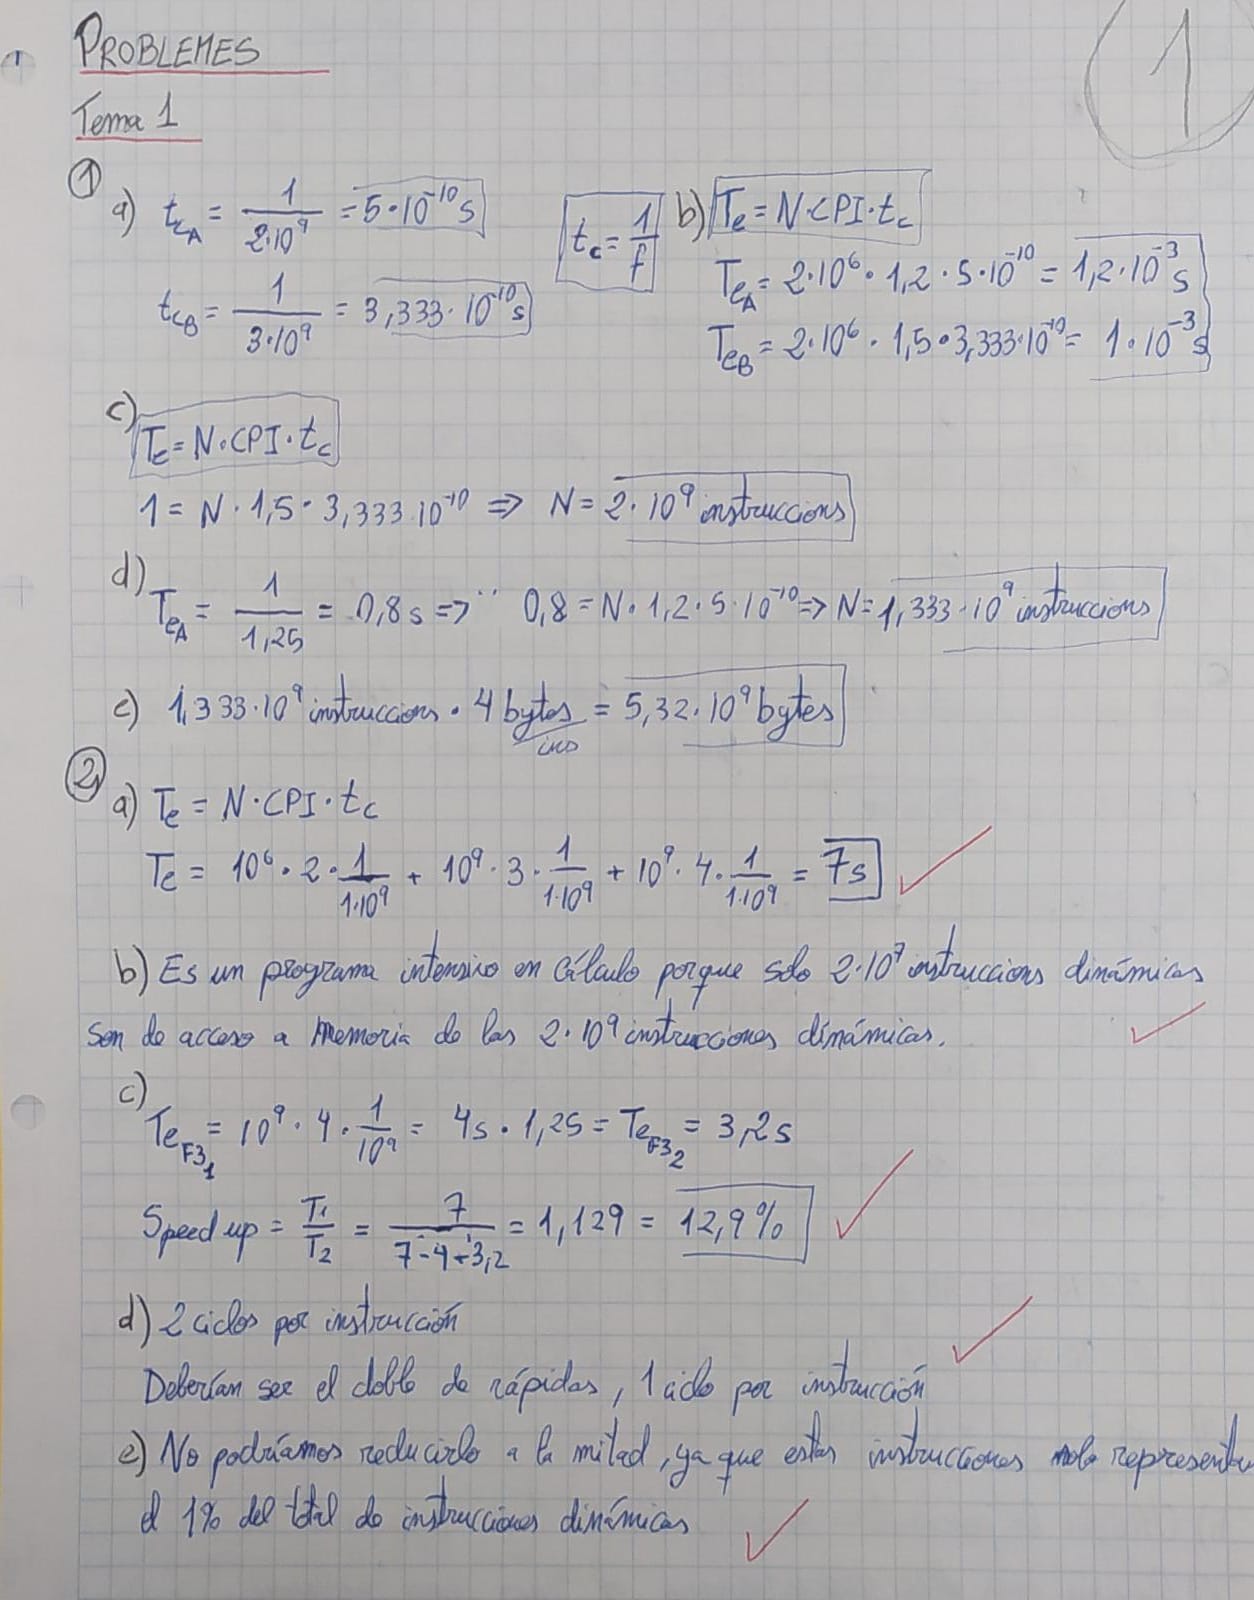 PROBLEMES
1
Tema 1
① a) t_cA = 1/(2·10⁹) = 5·10⁻¹⁰ s
t_c = 1/f
t_cB = 1/(3·10⁹) = 3,333·10⁻¹⁰ s
b) Te = N·CPI·t_c
Te_A = 2·10⁶ · 1,2 · 5·10⁻¹⁰ = 1,2·10⁻³ s
Te_B = 2·10⁶ · 1,5 · 3,333·10⁻¹⁰ = 1·10⁻³ s
c) Te = N·CPI·t_c
1 = N · 1,5 · 3,333·10⁻¹⁰ ⇒ N = 2·10⁹ instruccions
d) Te_A = 1/1,25 = 0,8 s ⇒ 0,8 = N · 1,2 · 5·10⁻¹⁰ ⇒ N = 1,333·10⁹ instruccions
e) 1,333·10⁹ instruccions · 4 bytes/ins = 5,32·10⁹ bytes
② a) Te = N·CPI·t_c
Te = 10⁶ · 2 · 1/(1·10⁹) + 10⁹ · 3 · 1/(1·10⁹) + 10⁹ · 4 · 1/(1·10⁹) = 7s
b) Es un programa intensivo en Cálculo porque solo 2·10⁷ instruccions dinámicas
son de acceso a Memoria de las 2·10⁹ instrucciones dinámicas.
c) Te_F3₁ = 10⁹ · 4 · 1/10⁹ = 4s · 1,25 = Te_F3₂ = 3,2s
Speed up = T₁/T₂ = 7/(7-4+3,2) = 1,129 = 12,9%
d) 2 ciclos por instrucción
Deberían ser el doble de rápidas, 1 ciclo por instrucción
e) No podríamos reducirlo a la mitad, ya que estas instrucciones representan
el 1% del total de instrucciones dinámicas